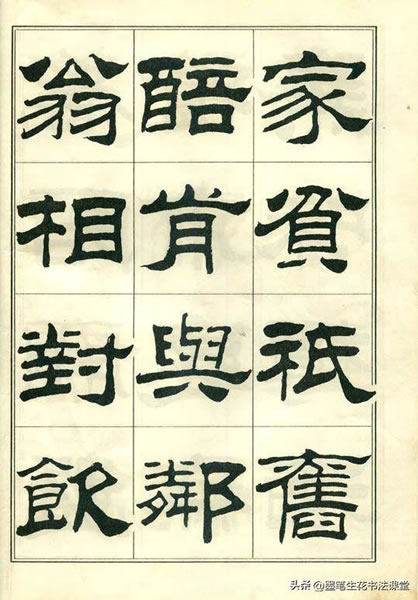 家貧祇舊
醅肯與鄰
翁相對飲
头条 @墨笔生花书法课堂